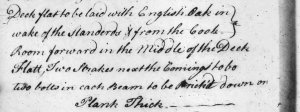 Deck flat to be laid with English Oak in
wake of the Standerds & from the Cook
Room forward in the Middle of the Deck
Flatt, Two Strakes next the Comings to be
two bolts in each Beam to be down on
Plank Thick.